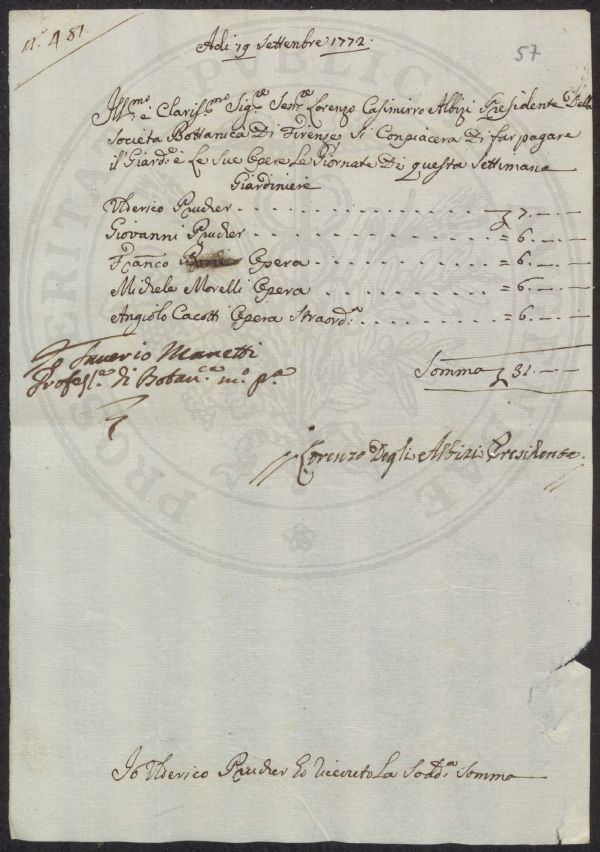 n.º 481.
57
Adi 19 Settenbre 1772.
Ill.mo e Claris.mo Sig.re Sen.re Lorenzo Casimirro Albizi Presidente Della
Società Bottanica Di Firenze Si Conpiacera Di far pagare
il Giard.e e Le Sue Opere Le Giornate Di questa Settimana
Giardiniere
Ulderico Prucher 7.
Giovanni Prucher = 6.
Franco Opera = 6.
Michele Morelli Opera = 6.
Angiolo Cacotti Opera Straord.a = 6.
Somma 31.
Saverio Manetti
Profess.e di Botan.ca m.o p.a
Lorenzo Degli Albizi Presidente
Io Ulderico Prucher ho riceuto La Sodd.a Somma
PROSPERITA PUBLICAE